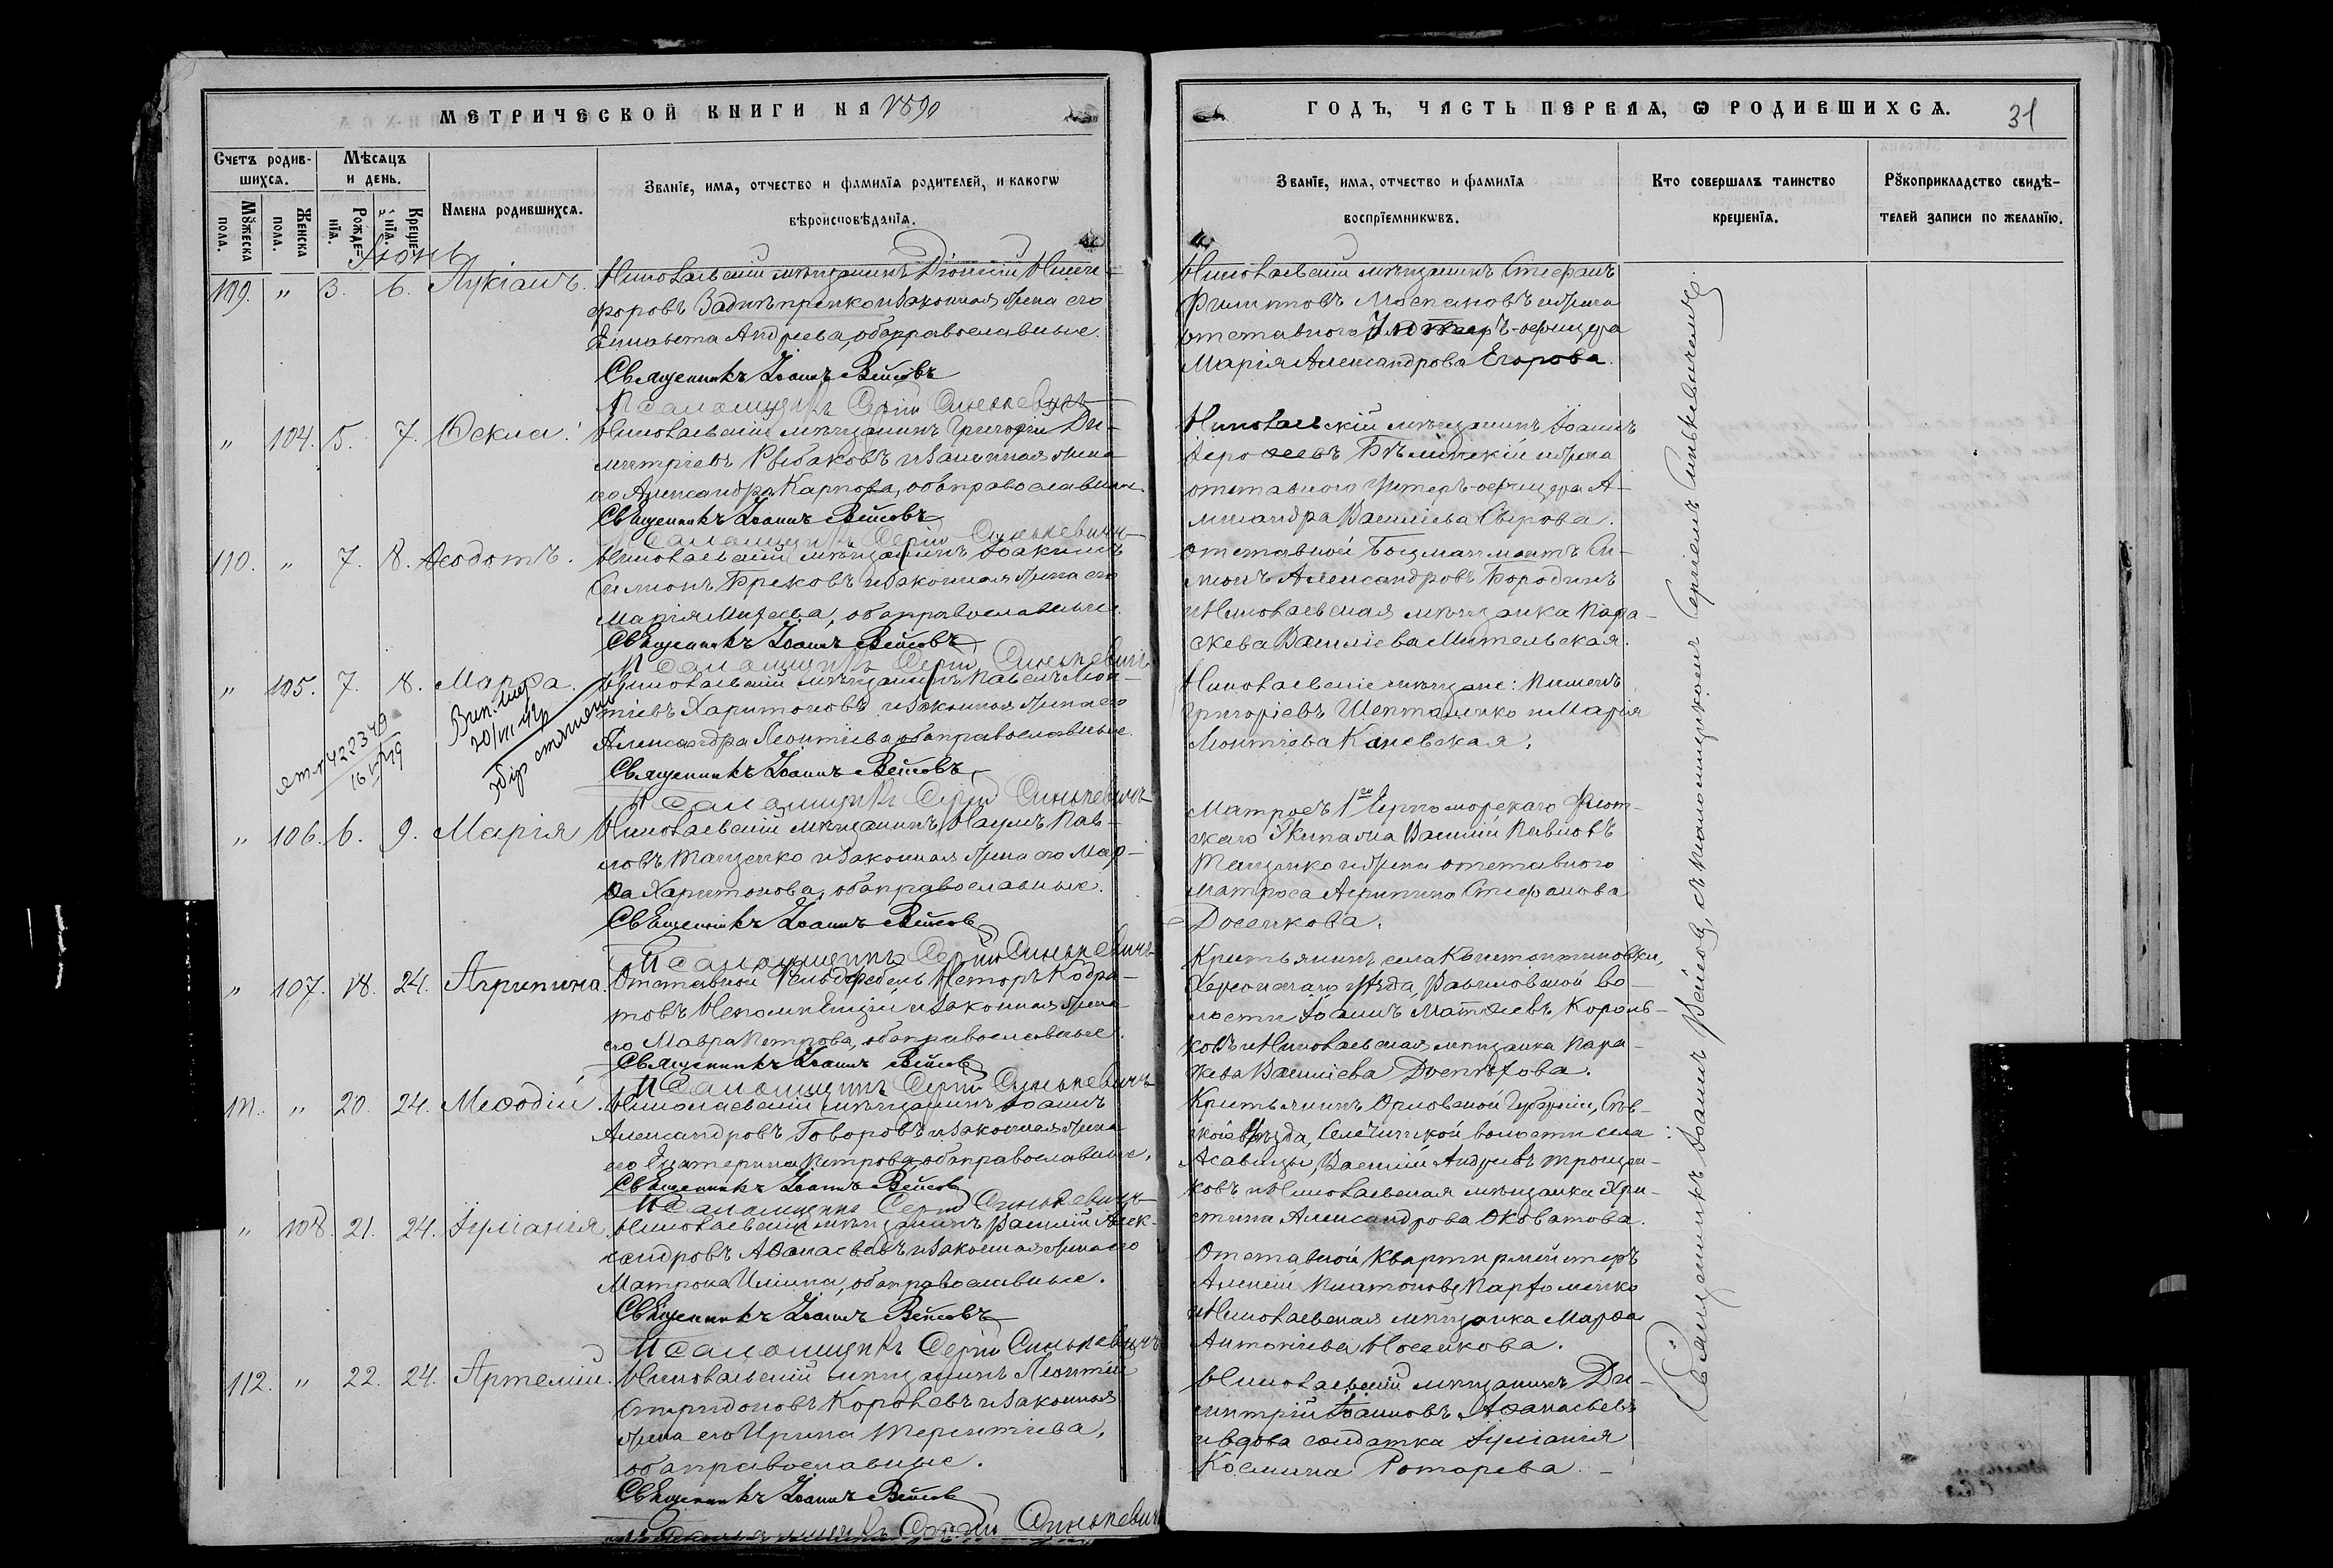 МЕТРИЧЕСКОЙ КНИГИ НА 1890
Счетъ родив-
шихся.
Мѣсяцъ
и день.
Имена родившихся.
Званіе, имя, отчество и фамилія родителей, и какогѡ
вѣроисповѣданія.
Мꙋжеска
пола.
Женска
пола.
Рожде-
нія.
Креще-
нія.
Іюнь
109. " 3. 6. Лукіанъ. Николаевскій мѣщанинъ Діонисій Ники-
форовъ Заднѣпренко и законная жена его
Елисавета Андреева, оба православные.
Священникъ Іоаннъ Вейсовъ
Псаломщикъ Сергій Синькевичъ
" 104. 5. 7. Ѳекла. Николаевскій мѣщанинъ Григорій Ди-
митріевъ Рыбаковъ и законная жена
его Александра Карпова, оба православные.
Священникъ Іоаннъ Вейсовъ
Псаломщикъ Сергій Синькевичъ
110. " 7. 8. Ѳеодотъ. Николаевскій мѣщанинъ Іоакимъ
Симоновъ Брековъ и законная жена его
Марія Матѳеева, оба православные.
Священникъ Іоаннъ Вейсовъ
Псаломщикъ Сергій Синькевичъ
" 105. 7. 8. Марѳа. Николаевскій мѣщанинъ Павелъ Леон-
тіевъ Харитоновъ и законная жена его
Александра Леонтіева, оба православные.
Священникъ Іоаннъ Вейсовъ
Псаломщикъ Сергій Синькевичъ
422349
" 106. 6. 9. Марія Николаевскій мѣщанинъ Наумъ Пав-
ловъ Танценко и законная жена его Мар-
ѳа Харитонова, оба православные.
Священникъ Іоаннъ Вейсовъ
Псаломщикъ Сергій Синькевичъ
" 107. 18. 24. Агрипина. Отставной Фельдфебель Несторъ Кодра-
товъ Непомнящій и законная жена
его Мавра Петрова, оба православные.
Священникъ Іоаннъ Вейсовъ
Псаломщикъ Сергій Синькевичъ
111. " 20. 24. Меѳодій. Николаевскій мѣщанинъ Іоаннъ
Александровъ Говоровъ и законная жена
его Екатерина Петрова, оба православные.
Священникъ Іоаннъ Вейсовъ
Псаломщикъ Сергій Синькевичъ
" 108. 21. 24. Іуліанія. Николаевскій мѣщанинъ Василій Алек-
сандровъ Аѳанасьевъ и законная жена его
Матрона Ильина, оба православные.
Священникъ Іоаннъ Вейсовъ
Псаломщикъ Сергій Синькевичъ
112. " 22. 24. Артемій. Николаевскій мѣщанинъ Леонтій
Спиридоновъ Королевъ и законная
жена его Ирина Терентіева,
оба православные.
Священникъ Іоаннъ Вейсовъ
Псаломщикъ Сергій Синькевичъ
ГОДЪ, ЧАСТЬ ПЕРВАЯ, Ѡ РОДИВШИХСЯ. 31
Званіе, имя, отчество и фамилія
воспріемникѡвъ.
Кто совершалъ таинство
крещенія.
Рꙋкоприкладство свидѣ-
телей записи по желанію.
Николаевскій мѣщанинъ Стефанъ
Филиповъ Моспановъ и жена
отставного Унтеръ-офицера
Марія Александрова Егорова.
Николаевскій мѣщанинъ Іоаннъ
Бѣлинскій и жена
отставного унтеръ-офицера А-
лександра Васильева Сырова.
Отставной Боцманматъ Си-
монъ Александровъ Бородинъ
и Николаевская мѣщанка Пара-
скева Васильева Мительская.
Николаевскіе мѣщане: Пименъ
Григоріевъ Шепталенко и Марія
Леонтіева Каневская.
Матросъ 1го Черноморскаго Флот-
скаго Экипажа Василій Павловъ
Танценко и жена отставного
матроса Агрипина Стефанова
Досенкова.
Крестьянинъ села Константиновки,
Херсонскаго уѣзда, во-
лости Іоаннъ Матѳеевъ Король-
ковъ и Николаевская мѣщанка Пара-
скева Васильева Доспѣхова.
Крестьянинъ Орловской Губерніи, Сѣв-
скаго уѣзда, волости села
Асавицы, Василій Андреевъ Трощен-
ковъ и Николаевская мѣщанка Хри-
стина Александрова Оковатова.
Отставной Квартирмейстеръ
Алексѣй Платоновъ Парфоменко
и Николаевская мѣщанка Марѳа
Антоніева Носенкова.
Николаевскій мѣщанинъ Ди-
митрій Іоанновъ Аѳанасьевъ
и вдова солдатка Іуліанія
Косьмина Ротарева.
Священникъ Іоаннъ Вейсовъ, съ псаломщикомъ Сергіемъ Синькевичемъ.